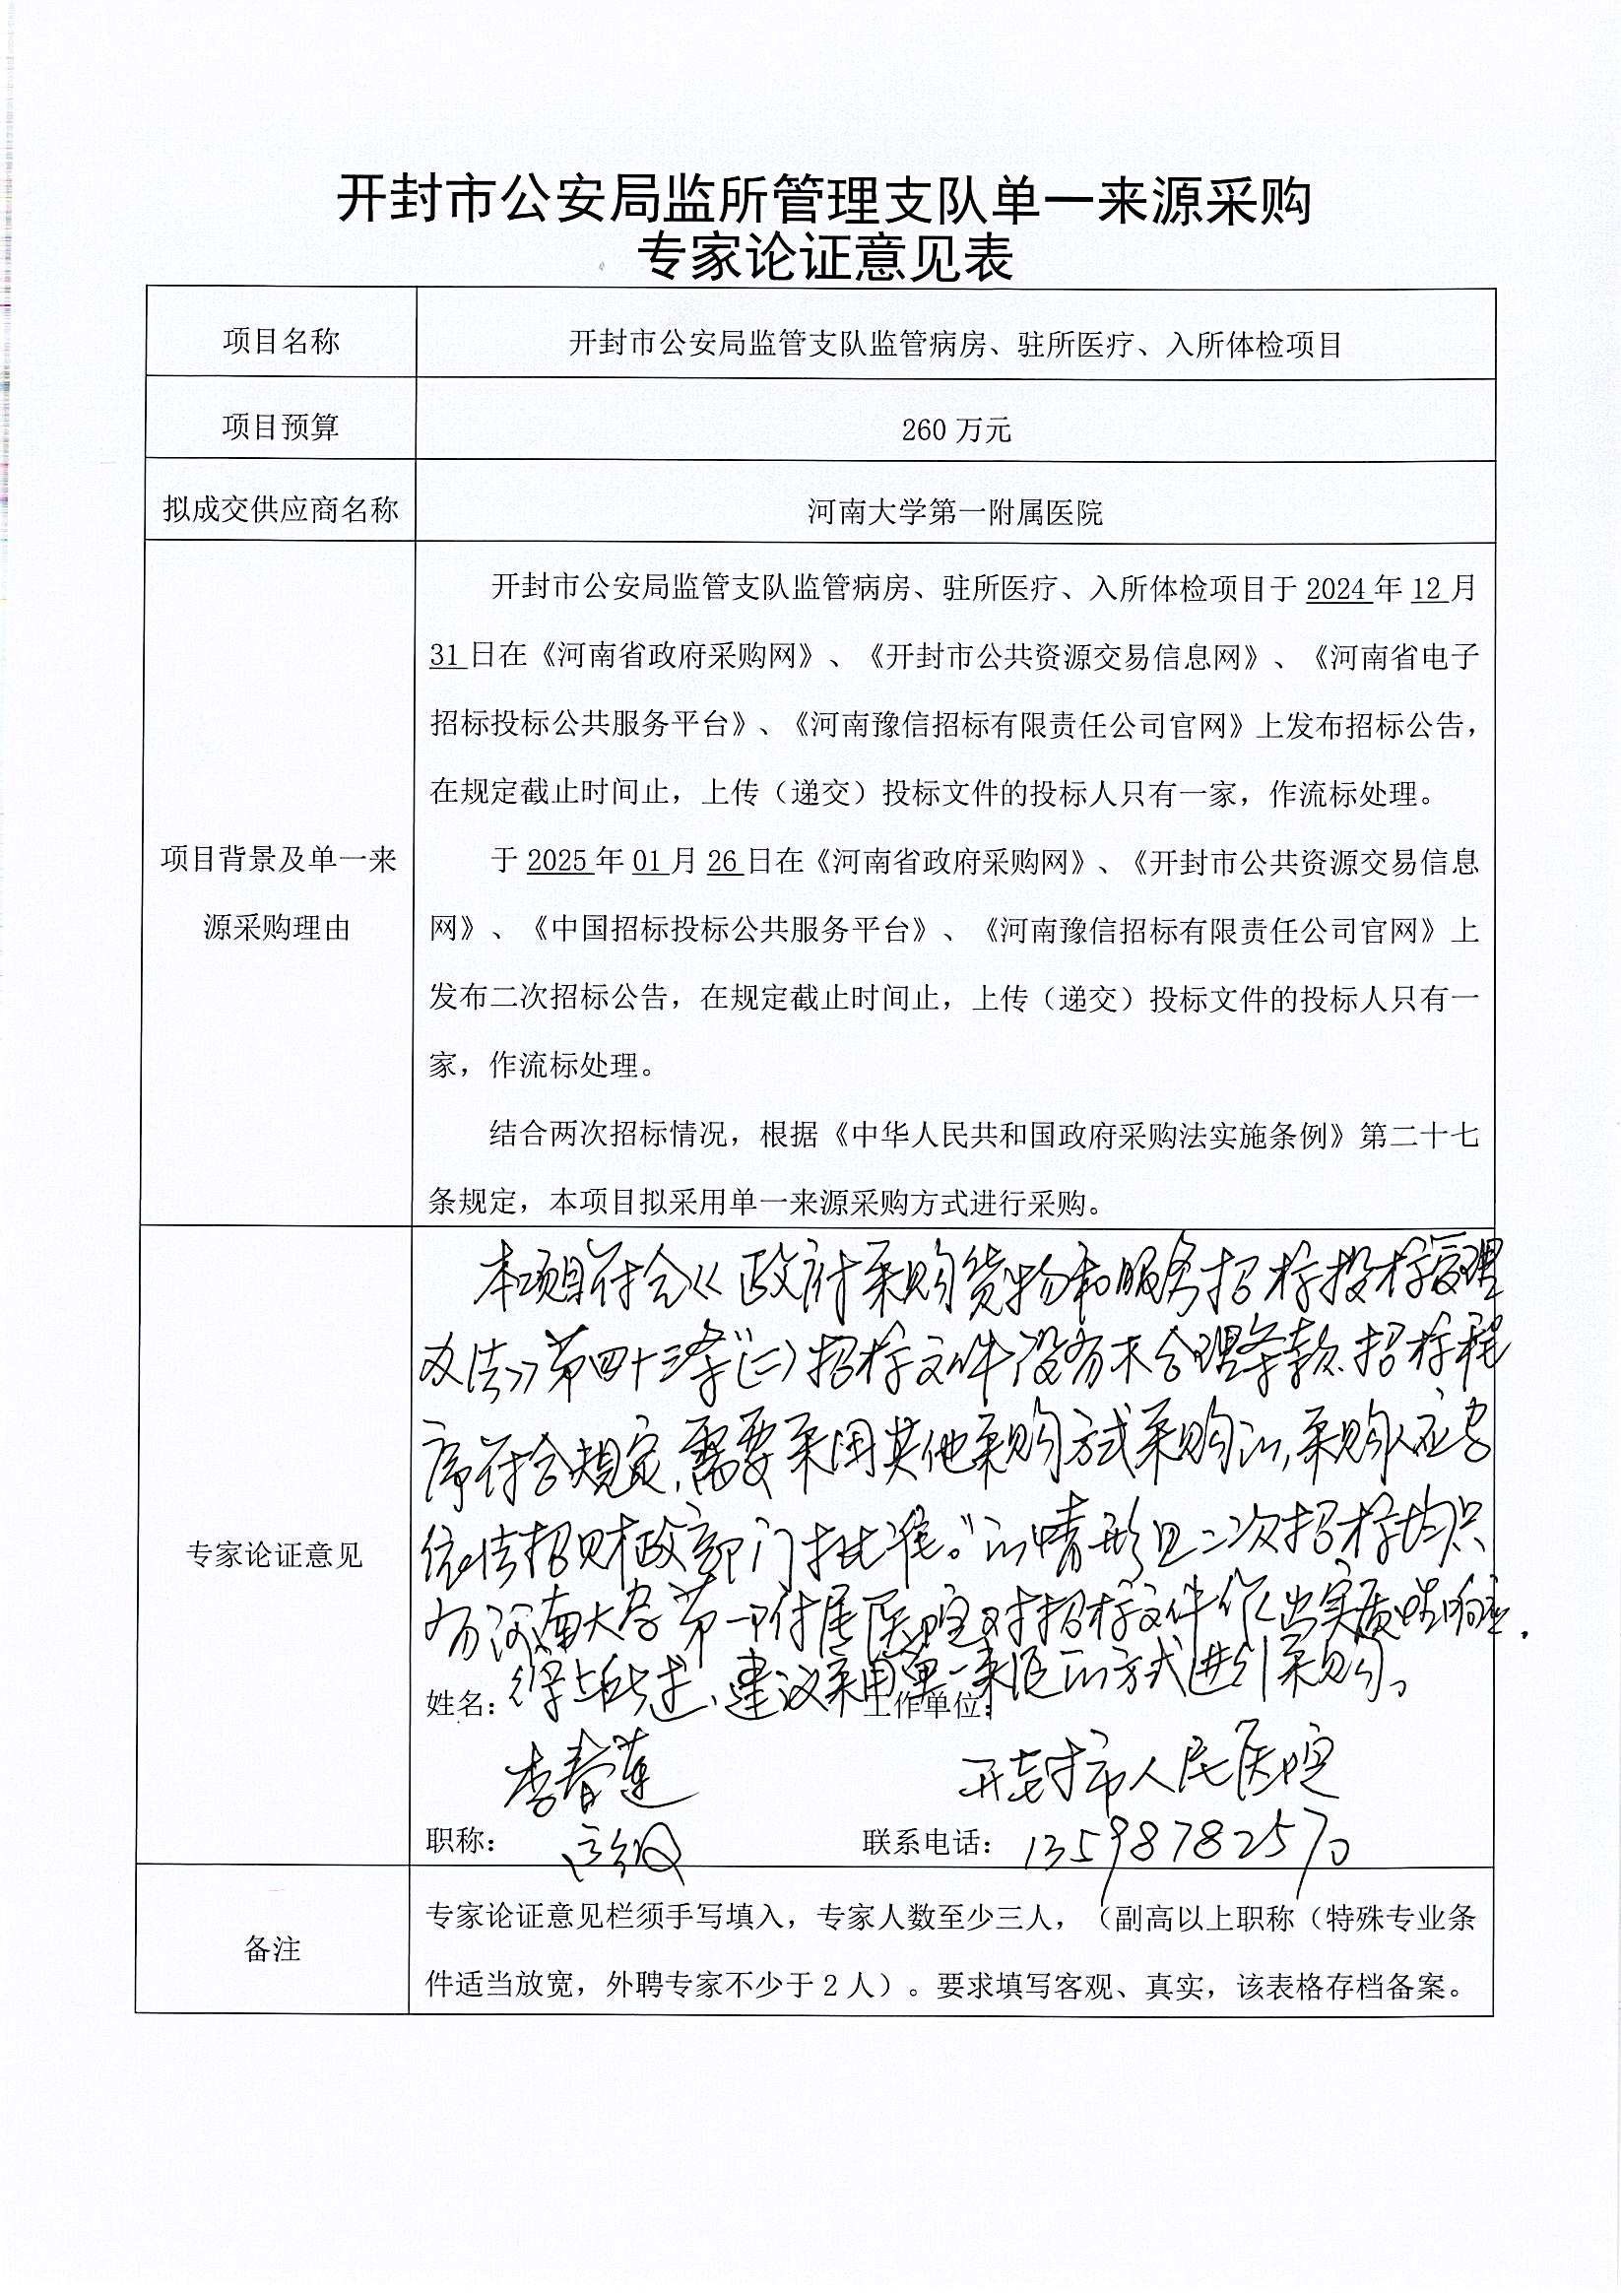 开封市公安局监所管理支队单一来源采购
专家论证意见表
项目名称
开封市公安局监管支队监管病房、驻所医疗、入所体检项目
项目预算
260 万元
拟成交供应商名称
河南大学第一附属医院
项目背景及单一来
源采购理由
开封市公安局监管支队监管病房、驻所医疗、入所体检项目于 2024 年 12 月
31 日在《河南省政府采购网》、《开封市公共资源交易信息网》、《河南省电子
招标投标公共服务平台》、《河南豫信招标有限责任公司官网》上发布招标公告，
在规定截止时间止，上传（递交）投标文件的投标人只有一家，作流标处理。
于 2025 年 01 月 26 日在《河南省政府采购网》、《开封市公共资源交易信息
网》、《中国招标投标公共服务平台》、《河南豫信招标有限责任公司官网》上
发布二次招标公告，在规定截止时间止，上传（递交）投标文件的投标人只有一
家，作流标处理。
结合两次招标情况，根据《中华人民共和国政府采购法实施条例》第二十七
条规定，本项目拟采用单一来源采购方式进行采购。
专家论证意见
本项目符合《政府采购货物和服务招标投标管理
办法》第四十三条“(二)招标文件没有不合理条款、招标程
序符合规定，需要采用其他采购方式采购的，采购人应当
依法报财政部门批准。”的情形且二次招标均只
有河南大学第一附属医院对招标文件作出实质性响应.
综上所述、建议采用单一来源的方式进行采购。
姓名：
工作单位：
李春莲
开封市人民医院
职称：
高级
联系电话：
13598782570
备注
专家论证意见栏须手写填入，专家人数至少三人，（副高以上职称（特殊专业条
件适当放宽，外聘专家不少于 2 人）。要求填写客观、真实，该表格存档备案。